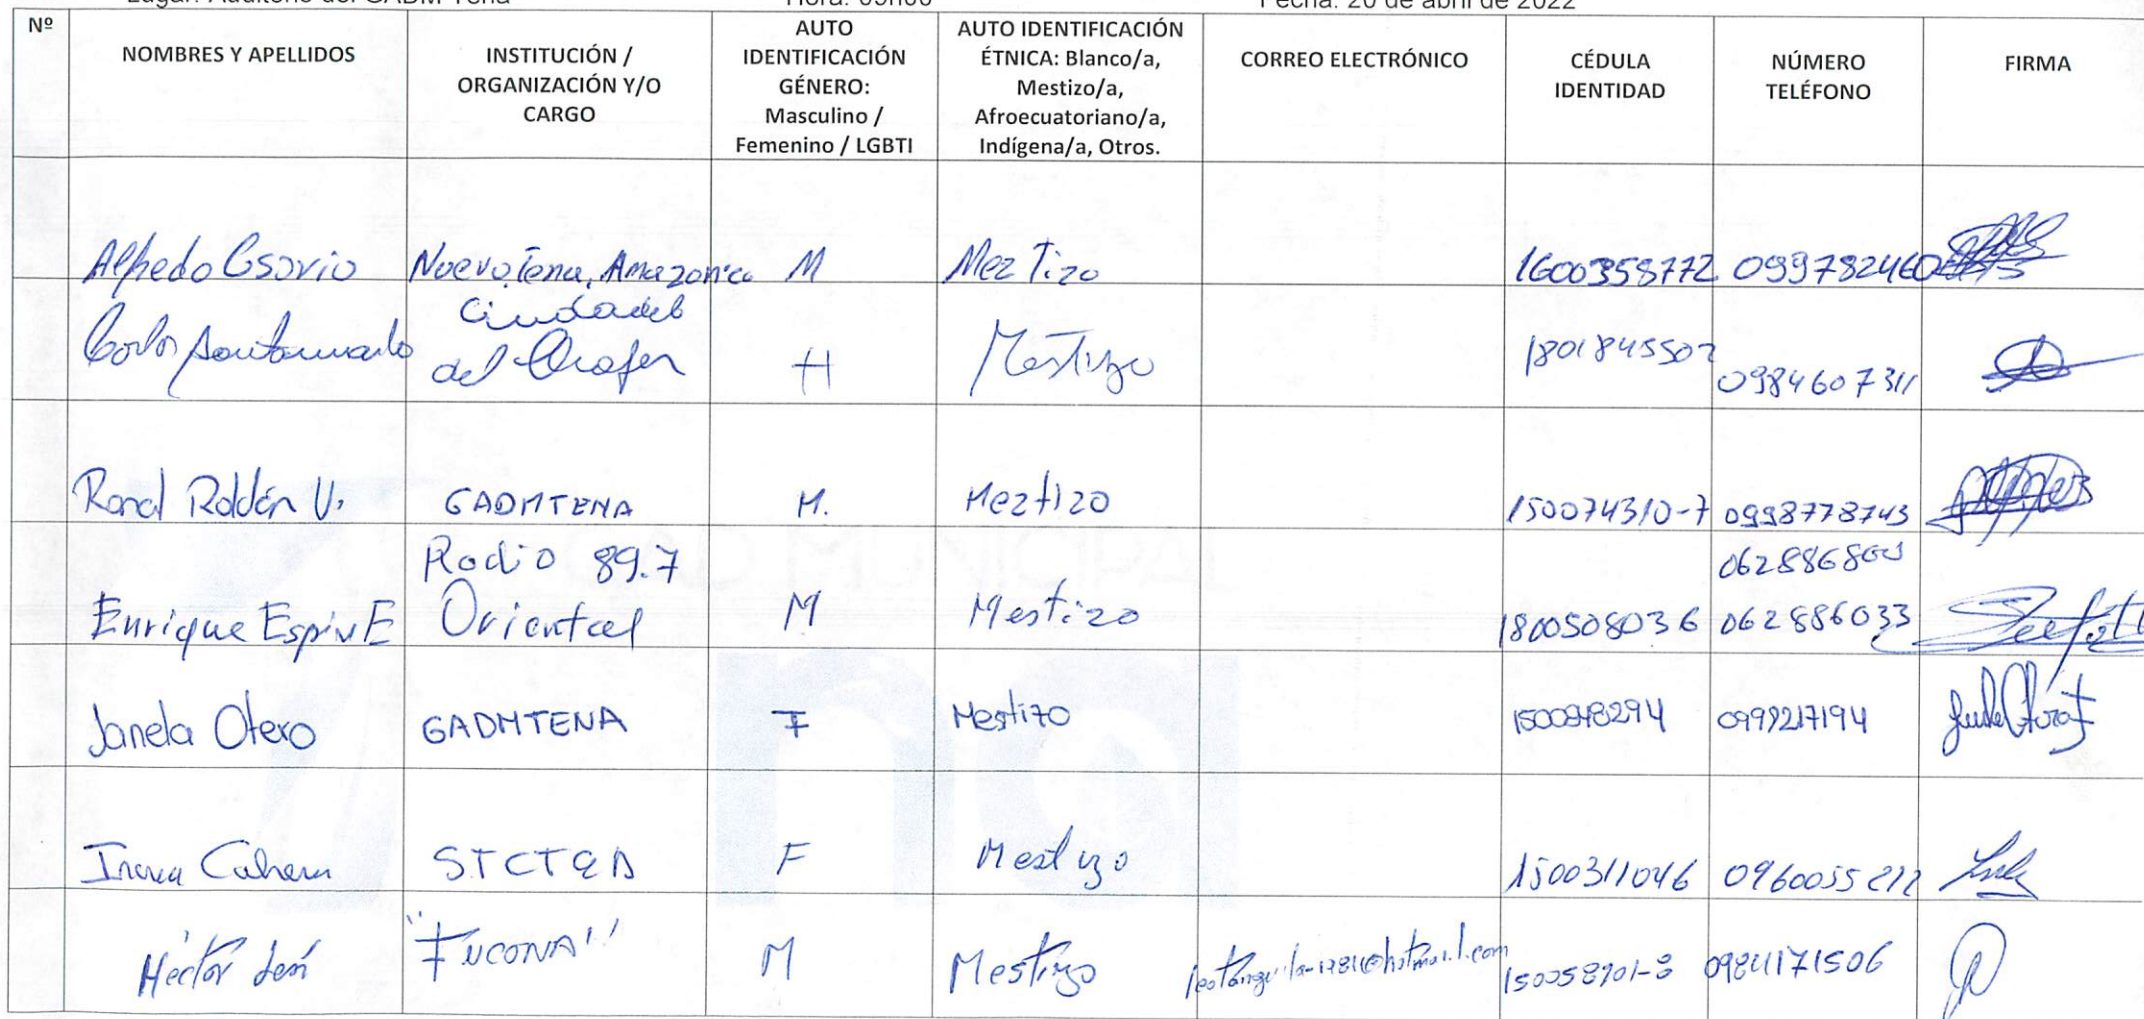 Lugar: Auditorio del GADM Tena Hora: 09h00 Fecha: 20 de abril de 2022
Nº NOMBRES Y APELLIDOS INSTITUCIÓN / ORGANIZACIÓN Y/O CARGO AUTO IDENTIFICACIÓN GÉNERO: Masculino / Femenino / LGBTI AUTO IDENTIFICACIÓN ÉTNICA: Blanco/a, Mestizo/a, Afroecuatoriano/a, Indígena/a, Otros. CORREO ELECTRÓNICO CÉDULA IDENTIDAD NÚMERO TELÉFONO FIRMA
Alfredo Osorio Nuevo Tena, Amazonica M Mez Tizo 1600358772 099782460
Ciudadel
del Chofer H Mestizo 1801845502 0984607311
Ronal Roldán V. GADMTENA M. Meztizo 150074310-7 0998778743
Radio 89.7
Enrique Espín E Oriental M Mestizo 1800508036 062886033
Janela Otero GADMTENA F Mestizo 0999217194
STCTEA F Mestizo 1500311046
Hector "FUCONA" M Mestizo